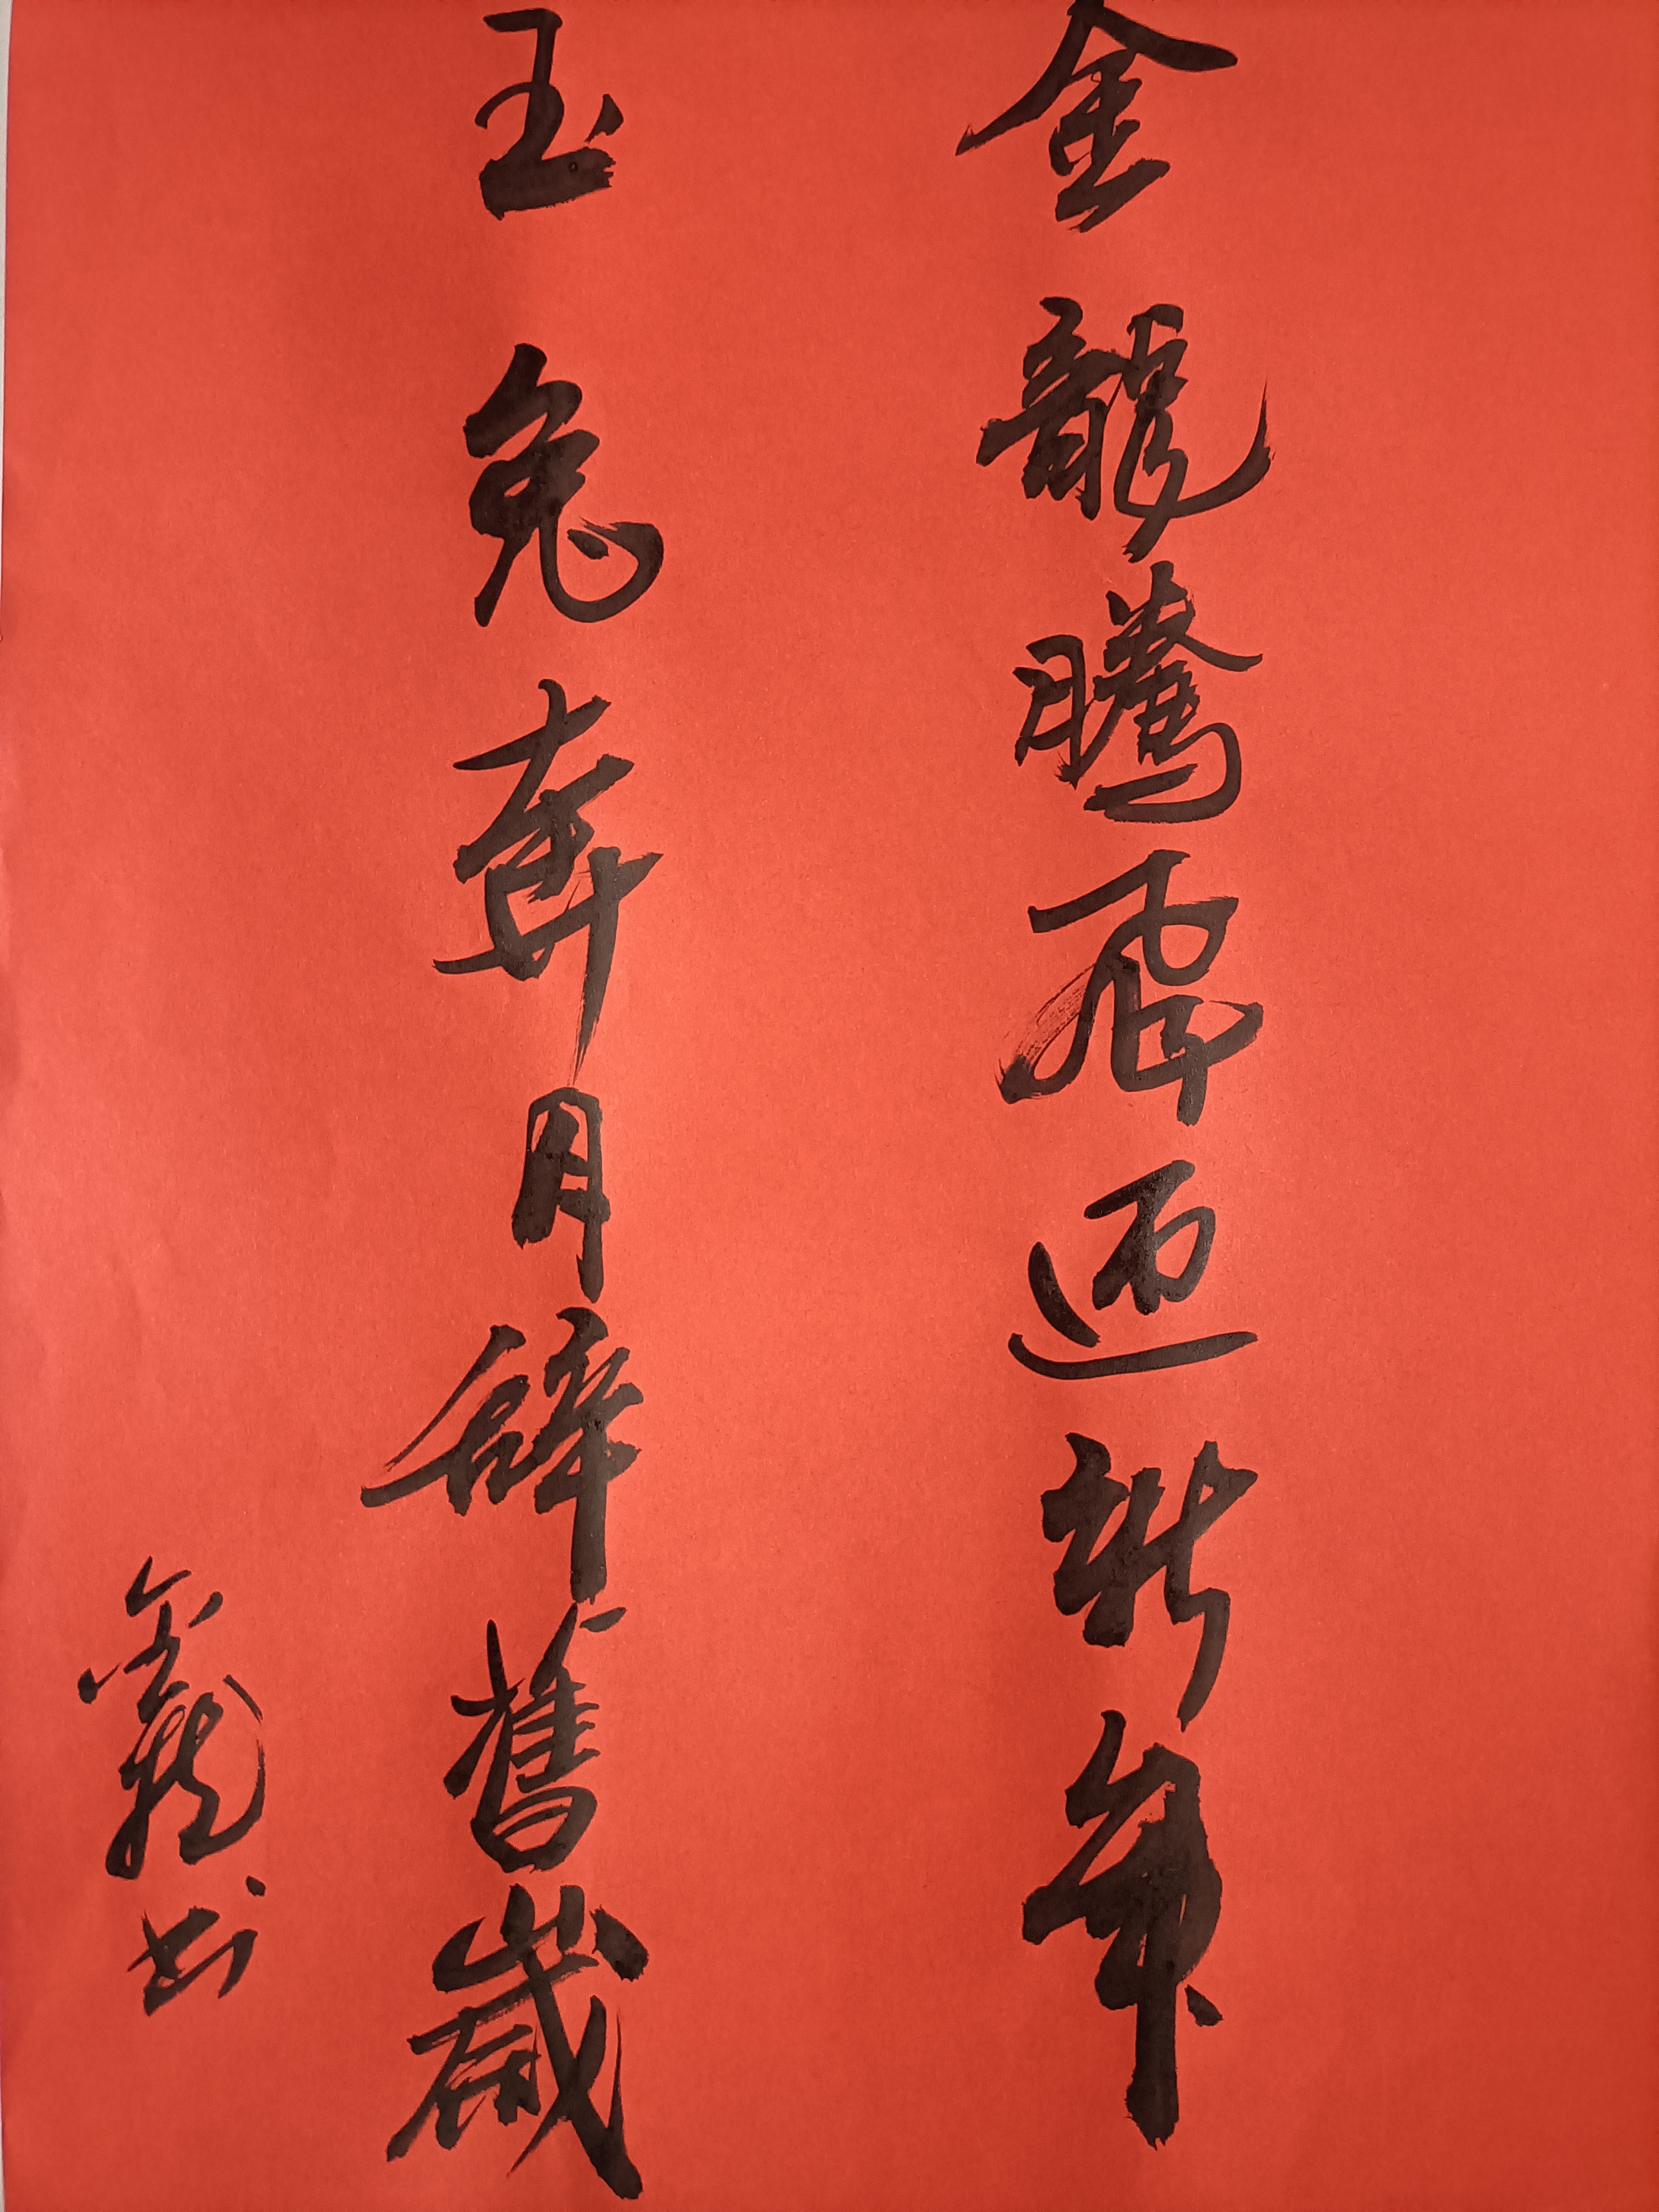 金龍騰飛迎新年
玉兔奔月辭舊歲
金龍书